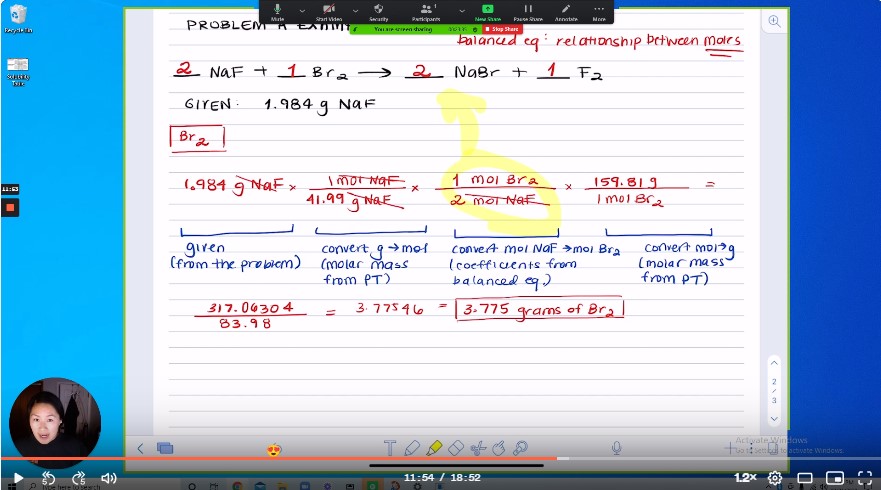 Mute
Start Video
Security
Participants
1
New Share
Pause Share
Annotate
More
You are screen sharing
Stop Share
Recycle Bin
PROBLEM A
balanced eq: relationship between moles
2 NaF + 1 Br2 → 2 NaBr + 1 F2
GIVEN: 1.984 g NaF
Br2
1.984 g NaF × 1 mol NaF / 41.99 g NaF × 1 mol Br2 / 2 mol NaF × 159.81 g / 1 mol Br2 =
given (from the problem)
convert g → mol (molar mass from PT)
convert mol NaF → mol Br2 (coefficients from balanced eq.)
convert mol → g (molar mass from PT)
317.06304 / 83.98 = 3.77546 = 3.775 grams of Br2
11:53
2 / 3
Activate Windows
Go to Settings to activate Windows.
Type here to search
5
5
11:54 / 18:52
1.2×